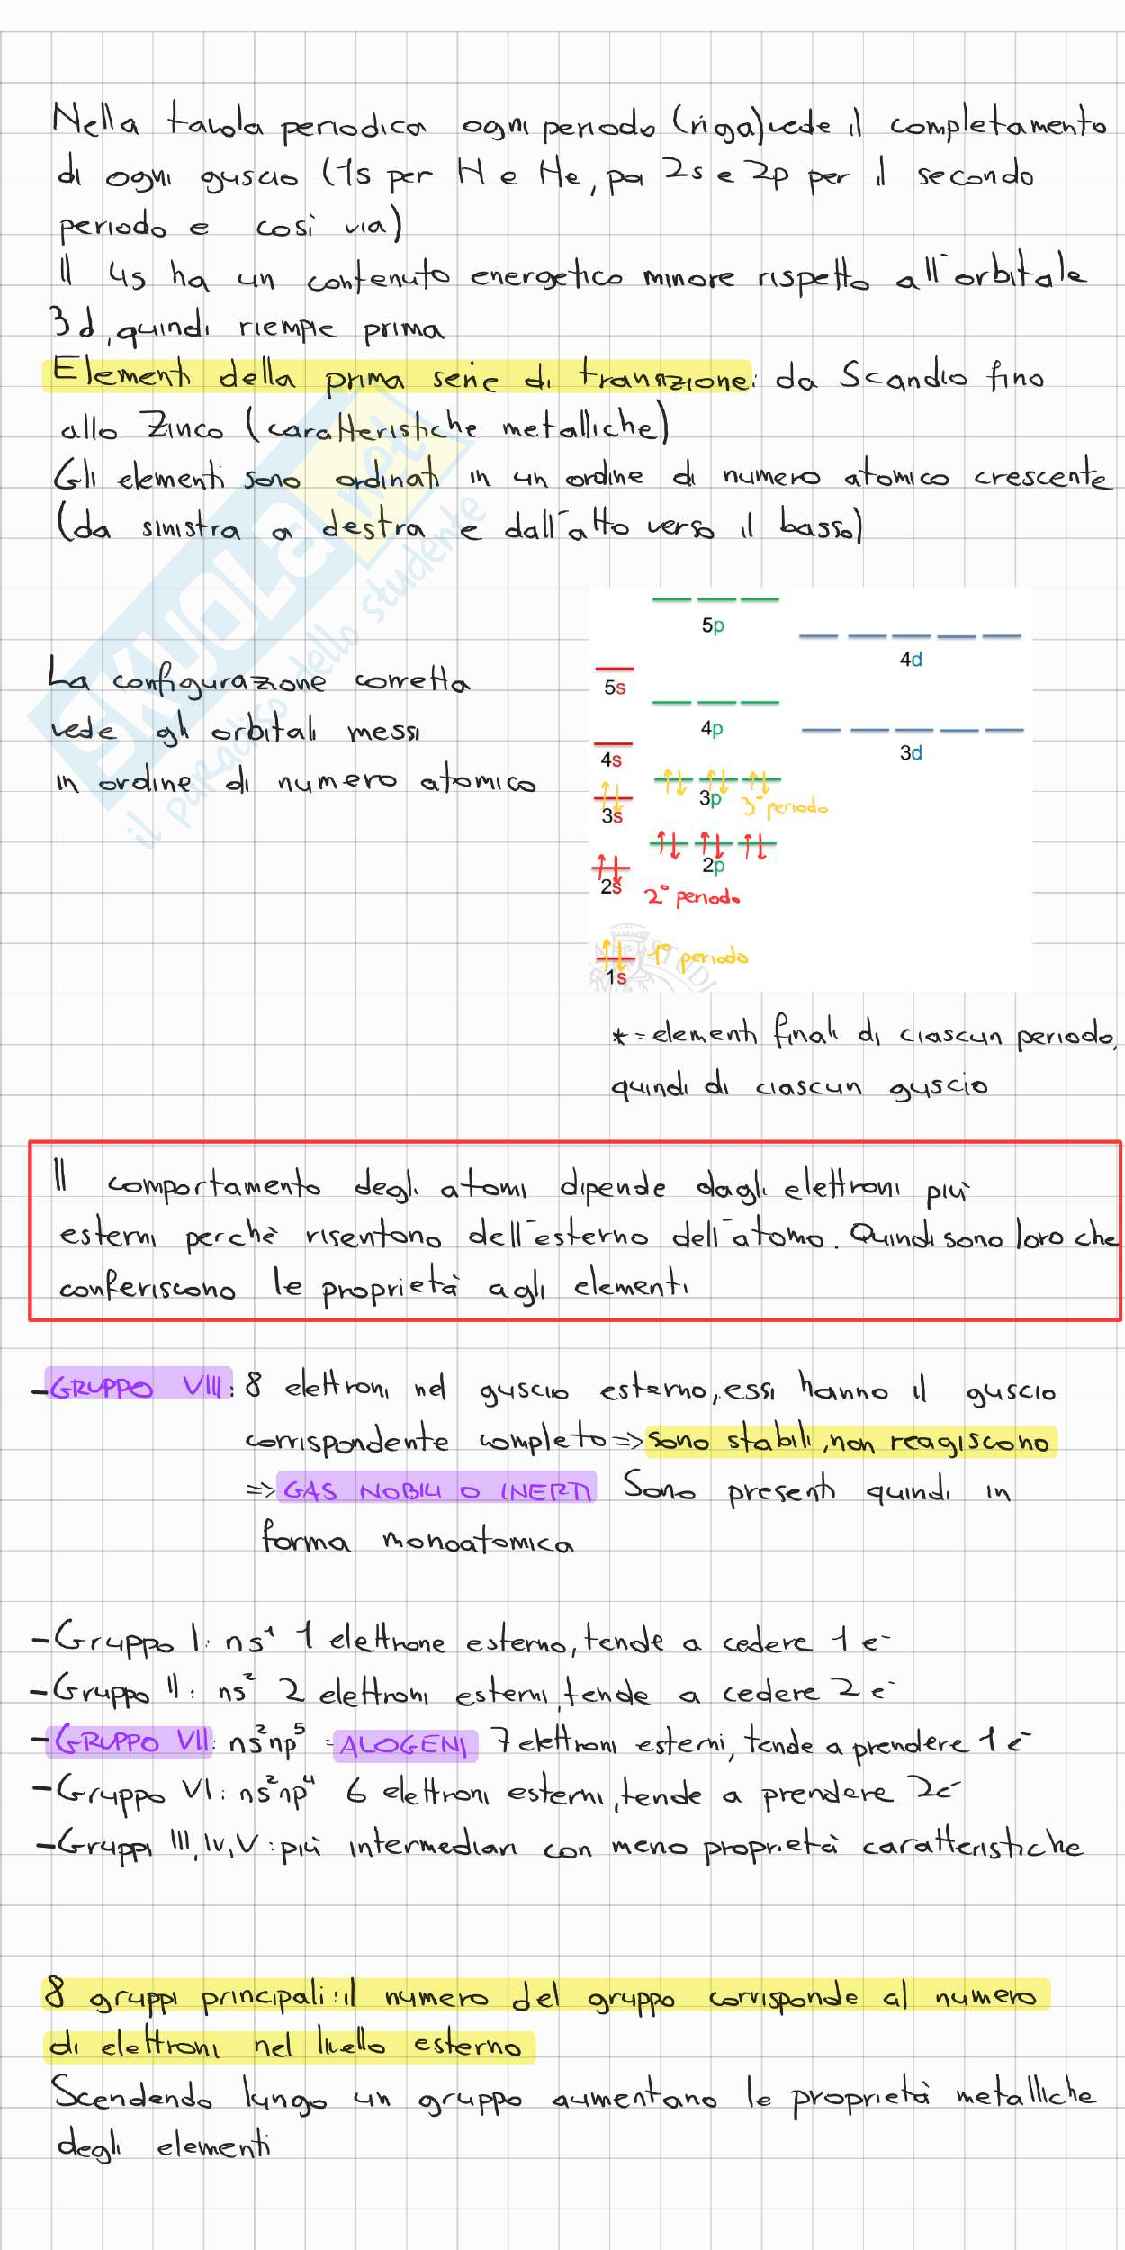 Nella tavola periodica ogni periodo (riga) vede il completamento
di ogni guscio (1s per H e He, poi 2s e 2p per il secondo
periodo e così via)
Il 4s ha un contenuto energetico minore rispetto all'orbitale
3d, quindi riempie prima
Elementi della prima serie di transizione: da Scandio fino
allo Zinco (caratteristiche metalliche)
Gli elementi sono ordinati in un ordine di numero atomico crescente
(da sinistra a destra e dall'alto verso il basso)
SKUOLA.net
il paradiso dello studente
La configurazione corretta
vede gli orbitali messi
in ordine di numero atomico
5p
4d
5s
4p
3d
4s
3p
3° periodo
3s
2p
2s
2° periodo
1° periodo
1s
*=elementi finali di ciascun periodo,
quindi di ciascun guscio
Il comportamento degli atomi dipende dagli elettroni più
esterni perchè risentono dell'esterno dell'atomo. Quindi sono loro che
conferiscono le proprietà agli elementi
-GRUPPO VIII: 8 elettroni nel guscio esterno, essi hanno il guscio
corrispondente completo=>sono stabili, non reagiscono
=> GAS NOBILI O INERTI Sono presenti quindi in
forma monoatomica
-Gruppo I: ns¹ 1 elettrone esterno, tende a cedere 1 e⁻
-Gruppo II: ns² 2 elettroni esterni, tende a cedere 2 e⁻
-GRUPPO VII: ns²np⁵ -ALOGENI 7 elettroni esterni, tende a prendere 1 e⁻
-Gruppo VI: ns²np⁴ 6 elettroni esterni, tende a prendere 2e⁻
-Gruppi III, IV, V: più intermediari con meno proprietà caratteristiche
8 gruppi principali: il numero del gruppo corrisponde al numero
di elettroni nel livello esterno
Scendendo lungo un gruppo aumentano le proprietà metalliche
degli elementi